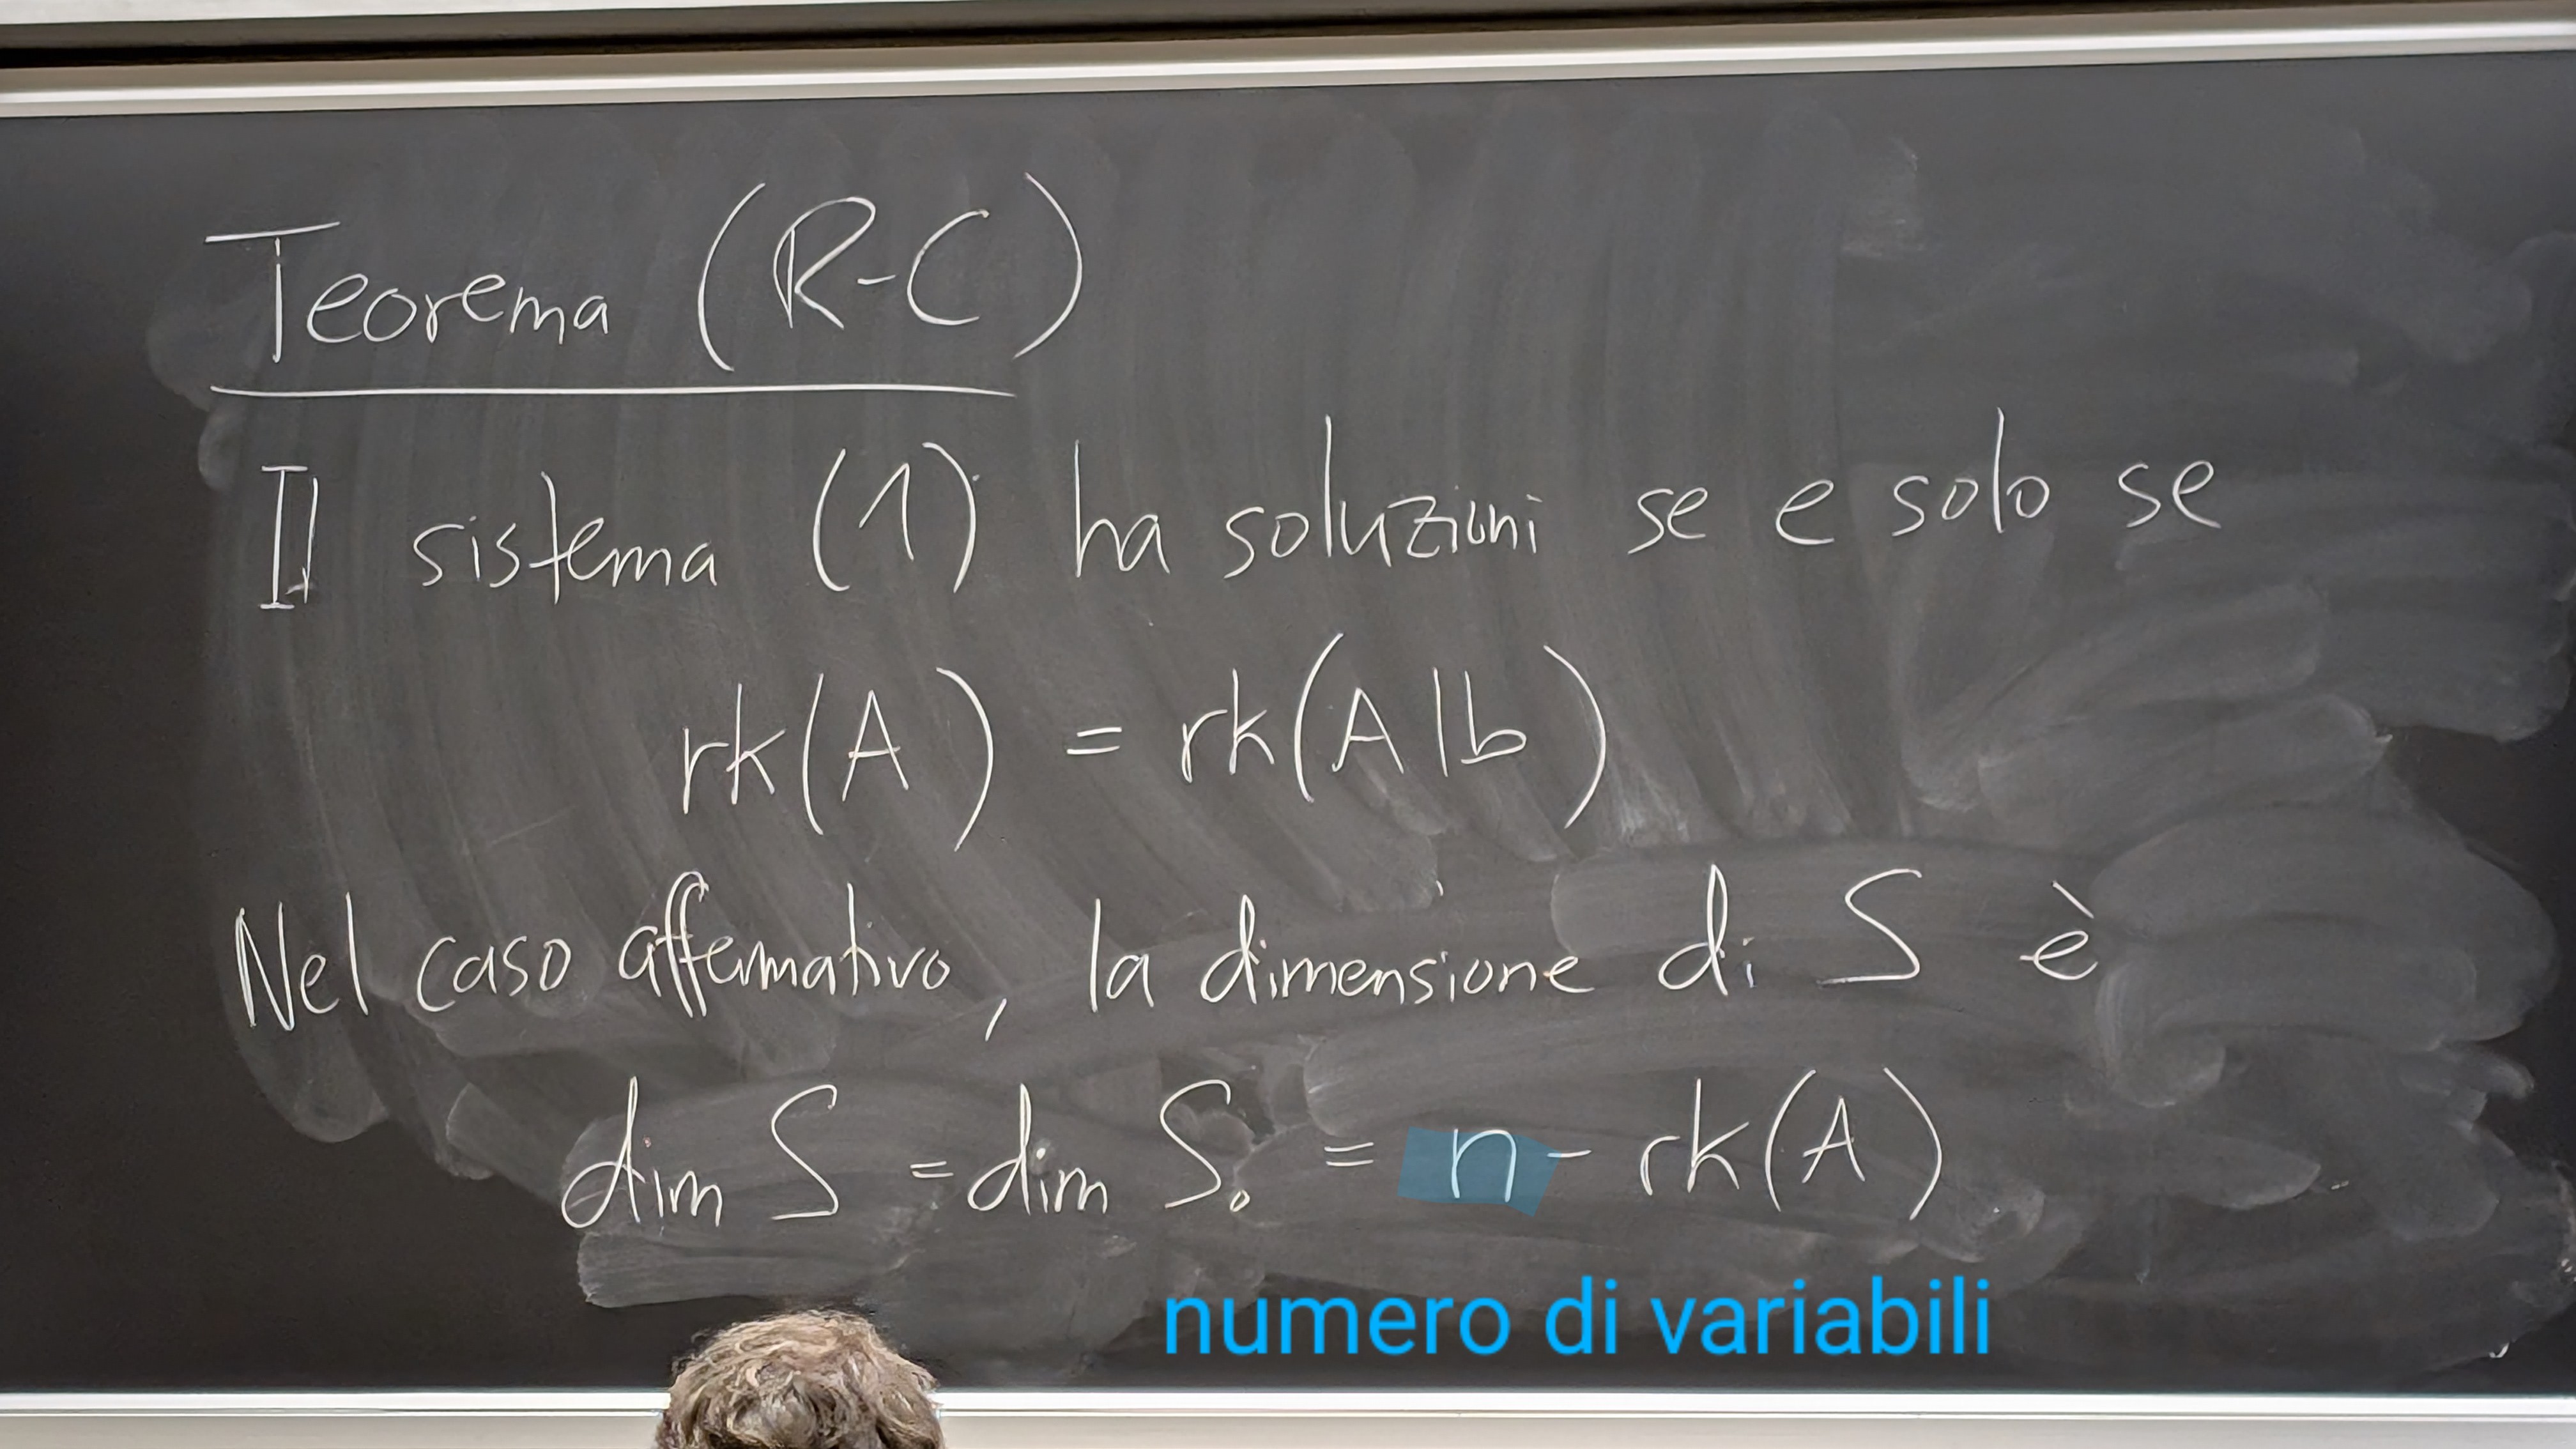 Teorema (R-C)
Il sistema (1) ha soluzioni se e solo se
rk(A) = rk(A|b)
Nel caso affermativo, la dimensione di S è
dim S = dim S₀ = n - rk(A)
numero di variabili